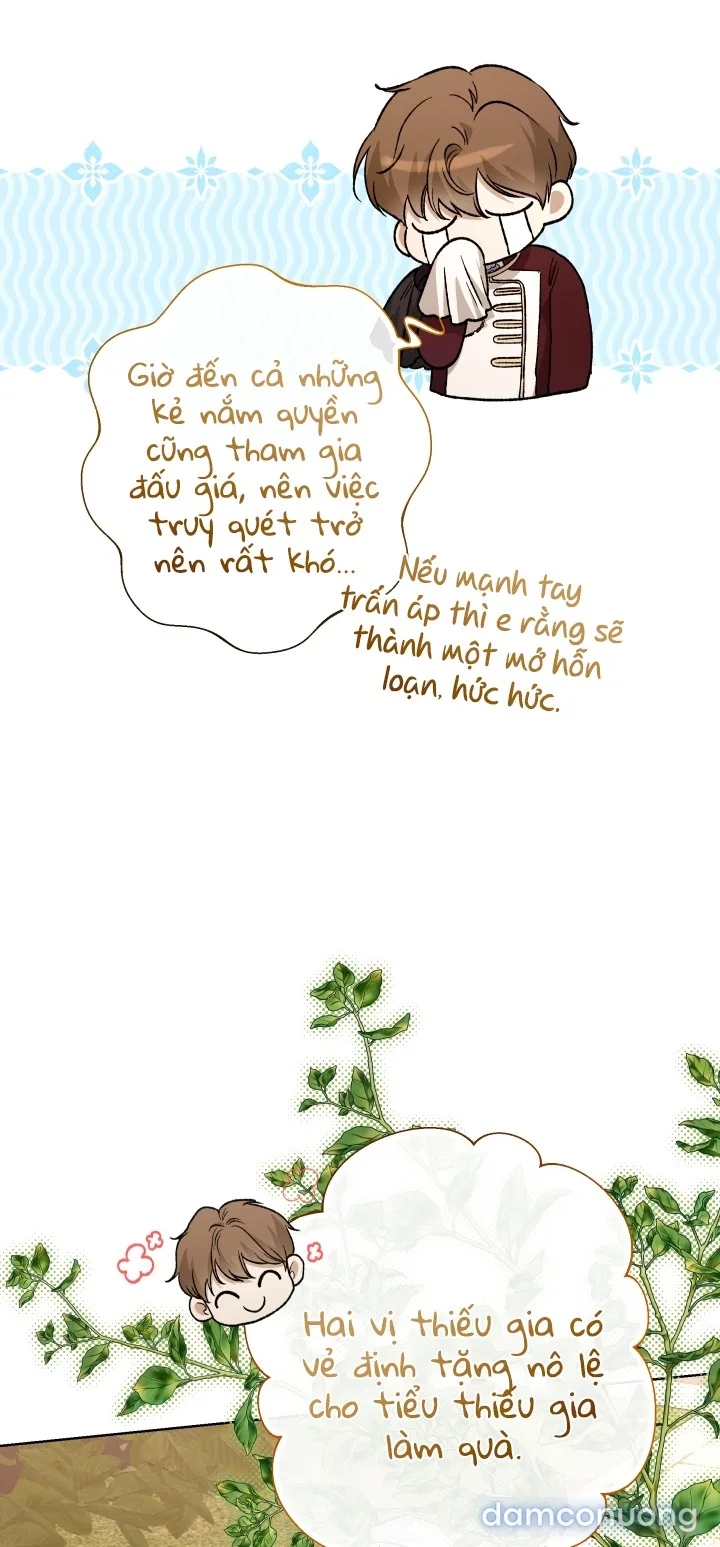 Giờ đến cả những
kẻ nắm quyền
cũng tham gia
đấu giá, nên việc
truy quét trở
nên rất khó...
Nếu mạnh tay
trấn áp thì e rằng sẽ
thành một mớ hỗn
loạn, hức hức.
Hai vị thiếu gia có
vẻ định tặng nô lệ
cho tiểu thiếu gia
làm quà.
damconuong